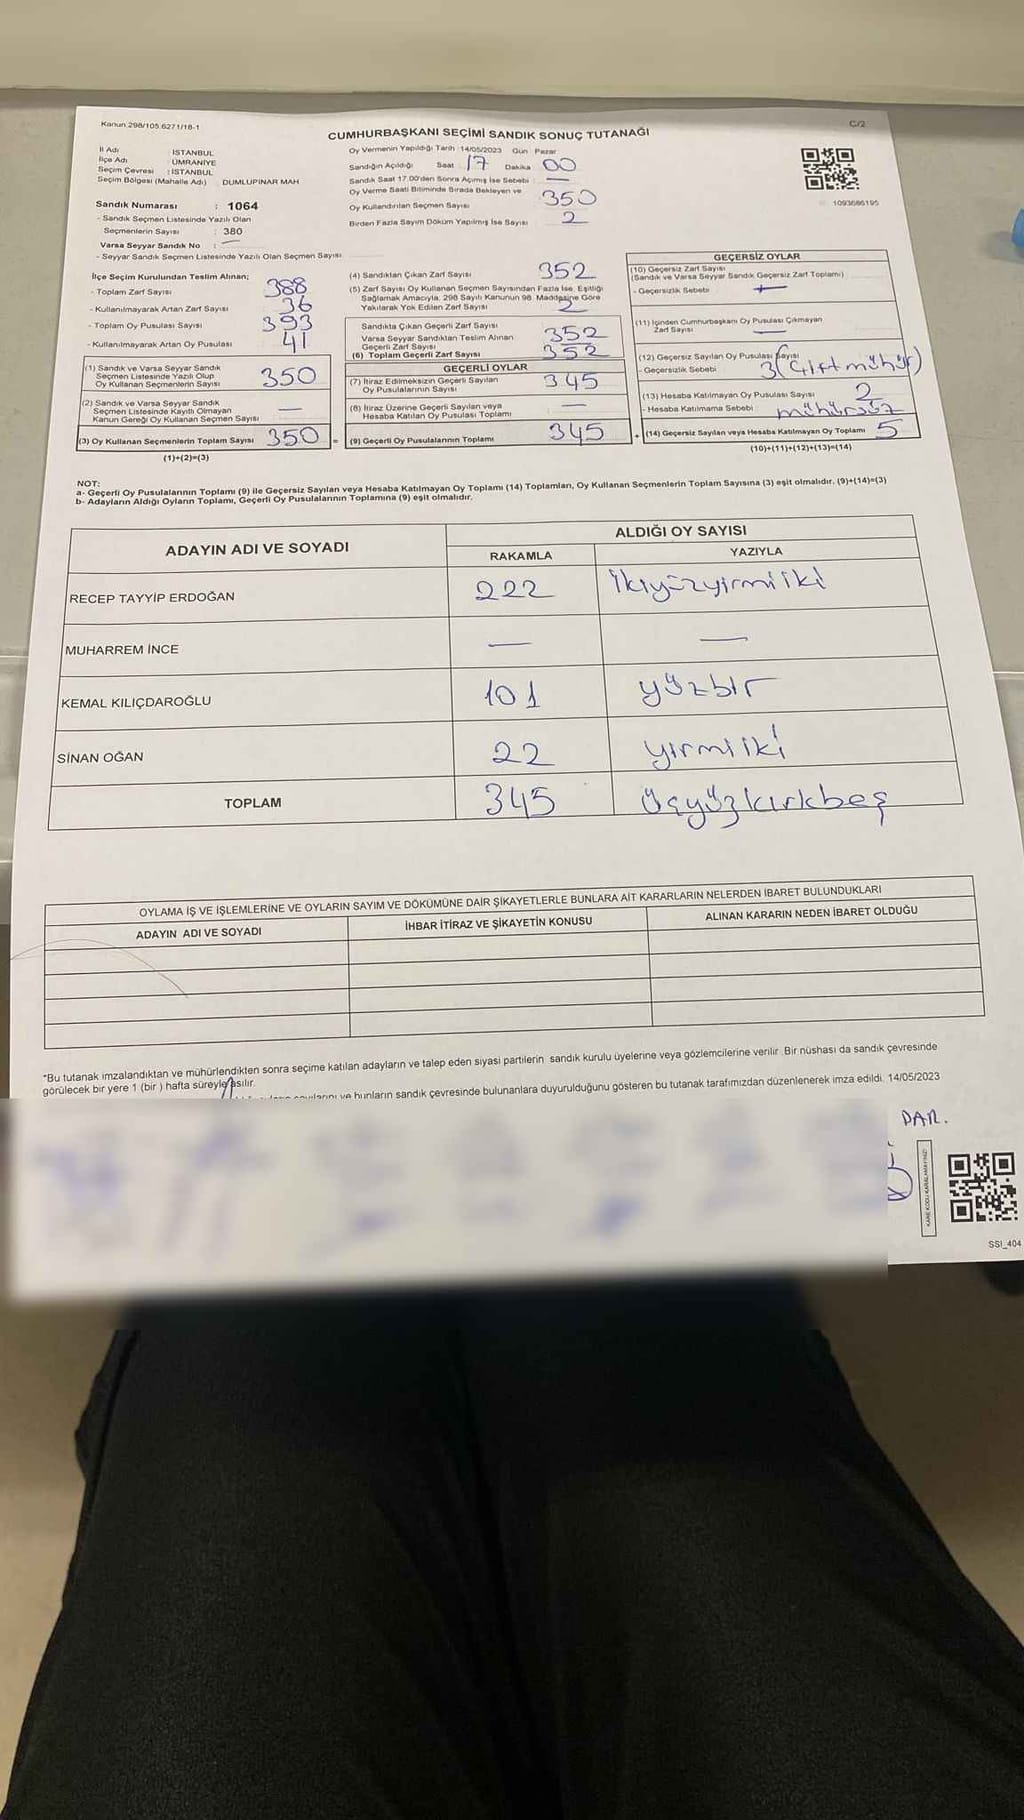 Kanun 298/105 6271/18-1
C/2
CUMHURBAŞKANI SEÇİMİ SANDIK SONUÇ TUTANAĞI
İl Adı : İSTANBUL
İlçe Adı : ÜMRANİYE
Seçim Çevresi : İSTANBUL
Seçim Bölgesi (Mahalle Adı) DUMLUPINAR MAH
Sandık Numarası : 1064
- Sandık Seçmen Listesinde Yazılı Olan
Seçmenlerin Sayısı : 380
Varsa Seyyar Sandık No : —
- Seyyar Sandık Seçmen Listesinde Yazılı Olan Seçmen Sayısı
Oy Vermenin Yapıldığı Tarih : 14/05/2023 Gün Pazar
Sandığın Açıldığı Saat 17 Dakika 00
Sandık Saat 17.00'den Sonra Açımış İse Sebebi : —
Oy Verme Saati Bitiminde Sırada Bekleyen ve
Oy Kullandırılan Seçmen Sayısı 350
Birden Fazla Sayım Döküm Yapılmış İse Sayısı 2
1093686195
İlçe Seçim Kurulundan Teslim Alınan;
- Toplam Zarf Sayısı 388
- Kullanılmayarak Artan Zarf Sayısı 36
- Toplam Oy Pusulası Sayısı 393
- Kullanılmayarak Artan Oy Pusulası 41
(1) Sandık ve Varsa Seyyar Sandık
Seçmen Listesinde Yazılı Olup
Oy Kullanan Seçmenlerin Sayısı 350
(2) Sandık ve Varsa Seyyar Sandık
Seçmen Listesinde Kayıtlı Olmayan
Kanun Gereği Oy Kullanan Seçmen Sayısı —
(3) Oy Kullanan Seçmenlerin Toplam Sayısı 350 =
(1)+(2)=(3)
(4) Sandıktan Çıkan Zarf Sayısı 352
(5) Zarf Sayısı Oy Kullanan Seçmen Sayısından Fazla İse, Eşitliği
Sağlamak Amacıyla, 298 Sayılı Kanunun 98. Maddesine Göre
Yakılarak Yok Edilen Zarf Sayısı 2
Sandıkta Çıkan Geçerli Zarf Sayısı 352
Varsa Seyyar Sandıktan Teslim Alınan
Geçerli Zarf Sayısı
(6) Toplam Geçerli Zarf Sayısı 352
GEÇERLİ OYLAR
(7) İtiraz Edilmeksizin Geçerli Sayılan
Oy Pusulalarının Sayısı 345
(8) İtiraz Üzerine Geçerli Sayılan veya
Hesaba Katılan Oy Pusulası Toplamı —
(9) Geçerli Oy Pusulalarının Toplamı 345 +
GEÇERSİZ OYLAR
(10) Geçersiz Zarf Sayısı
(Sandık ve Varsa Seyyar Sandık Geçersiz Zarf Toplamı)
- Geçersizlik Sebebi —
(11) İçinden Cumhurbaşkanı Oy Pusulası Çıkmayan
Zarf Sayısı —
(12) Geçersiz Sayılan Oy Pusulası Sayısı 3 (Çift mühür)
- Geçersizlik Sebebi
(13) Hesaba Katılmayan Oy Pusulası Sayısı 2
- Hesaba Katılmama Sebebi mühürsüz
(14) Geçersiz Sayılan veya Hesaba Katılmayan Oy Toplamı 5
(10)+(11)+(12)+(13)=(14)
NOT:
a- Geçerli Oy Pusulalarının Toplamı (9) ile Geçersiz Sayılan veya Hesaba Katılmayan Oy Toplamı (14) Toplamları, Oy Kullanan Seçmenlerin Toplam Sayısına (3) eşit olmalıdır. (9)+(14)=(3)
b- Adayların Aldığı Oyların Toplamı, Geçerli Oy Pusulalarının Toplamına (9) eşit olmalıdır.
ADAYIN ADI VE SOYADI ALDIĞI OY SAYISI
RAKAMLA YAZIYLA
RECEP TAYYİP ERDOĞAN 222 ikiyüzyirmiiki
MUHARREM İNCE — —
KEMAL KILIÇDAROĞLU 101 yüzbir
SİNAN OĞAN 22 yirmiiki
TOPLAM 345 üçyüzkırkbeş
OYLAMA İŞ VE İŞLEMLERİNE VE OYLARIN SAYIM VE DÖKÜMÜNE DAİR ŞİKAYETLERLE BUNLARA AİT KARARLARIN NELERDEN İBARET BULUNDUKLARI
ADAYIN ADI VE SOYADI İHBAR İTİRAZ VE ŞİKAYETİN KONUSU ALINAN KARARIN NEDEN İBARET OLDUĞU
*Bu tutanak imzalandıktan ve mühürlendikten sonra seçime katılan adayların ve talep eden siyasi partilerin sandık kurulu üyelerine veya gözlemcilerine verilir. Bir nüshası da sandık çevresinde
görülecek bir yere 1 (bir) hafta süreyle asılır.
ve bunların sandık çevresinde bulunanlara duyurulduğunu gösteren bu tutanak tarafımızdan düzenlenerek imza edildi. 14/05/2023
KARE KODU KARALAMAYINIZ!
SSI_404